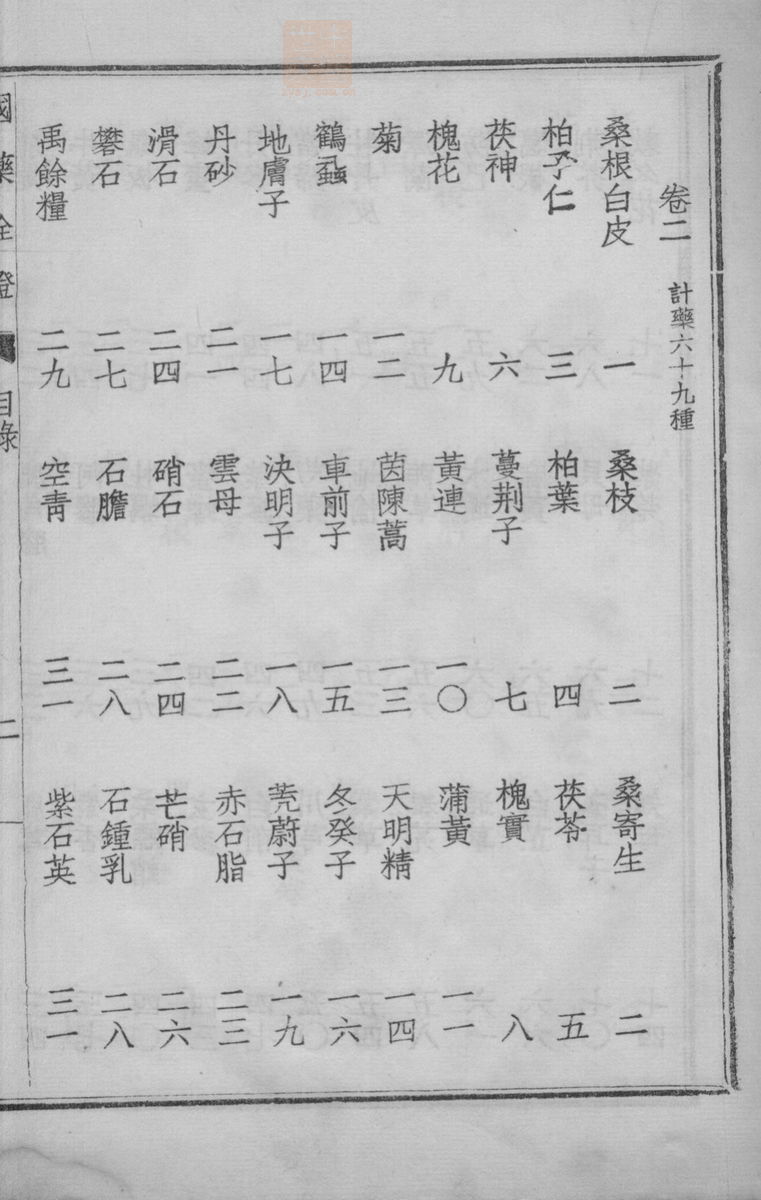 卷二 計藥六十九種
桑根白皮 一 桑枝 二 桑寄生 二
柏子仁 三 柏葉 四 茯苓 五
茯神 六 蔓荆子 七 槐實 八
槐花 九 黃連 一〇 蒲黃 一一
菊 一二 茵陳蒿 一三 天明精 一四
鶴蝨 一四 車前子 一五 冬癸子 一六
地膚子 一七 決明子 一八 茺蔚子 一九
丹砂 二一 雲母 二二 赤石脂 二三
滑石 二四 硝石 二四 芒硝 二六
礬石 二七 石膽 二八 石鍾乳 二八
禹餘糧 二九 空靑 三一 紫石英 三一
國藥詮證 目錄 二